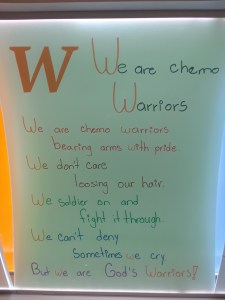 W We are chemo
Warriors
We are chemo warriors
bearing arms with pride.
We don't care
loosing our hair.
We soldier on and
fight it through.
We can't deny
Sometimes we cry.
But we are God's Warriors!